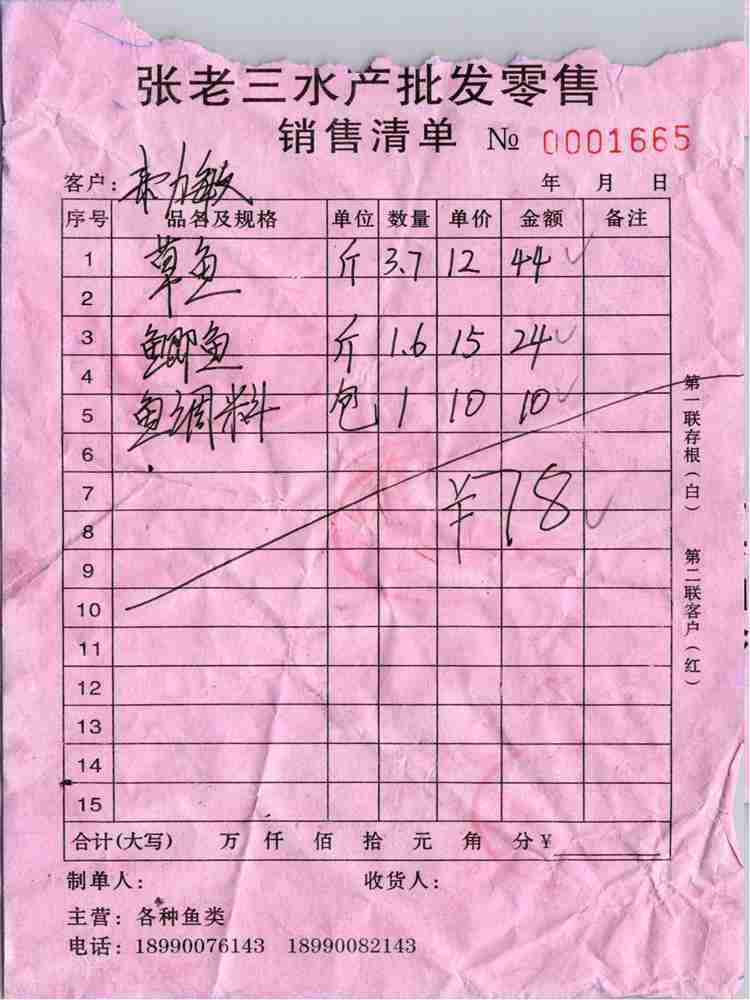 张老三水产批发零售
销售清单 № 0001665
客户: 敏 年 月 日
序号 品名及规格 单位 数量 单价 金额 备注
1 草鱼 斤 3.7 12 44
2
3 鲫鱼 斤 1.6 15 24
4
5 鱼调料 包 1 10 10
6
7 ¥78
8
9
10
11
12
13
14
15
合计(大写) 万 仟 佰 拾 元 角 分 ¥
制单人: 收货人:
主营: 各种鱼类
电话: 18990076143 18990082143
第一联存根(白)
第二联客户(红)